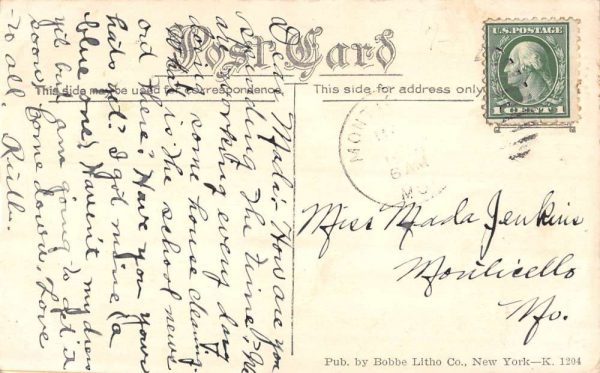 Post Card
This side may be used for correspondence
This side for address only
U.S. POSTAGE
1 CENT 1
MO
6 AM
MO
Dear Mada:- How are you
spending the time? We
are working every day
doing some house cleaning
What is the school news
out there? Have you your
hats yet? I got mine (a
blue one) Haven't my dress
yet but am going to get it
soon. Come down, Love
to all. Ruth.
Miss Mada Jenkins
Monticello
Mo.
Pub. by Bobbe Litho Co., New York—K. 1204